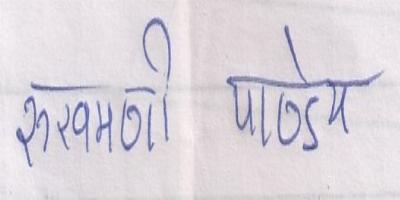 रूखमणी पाण्डेय